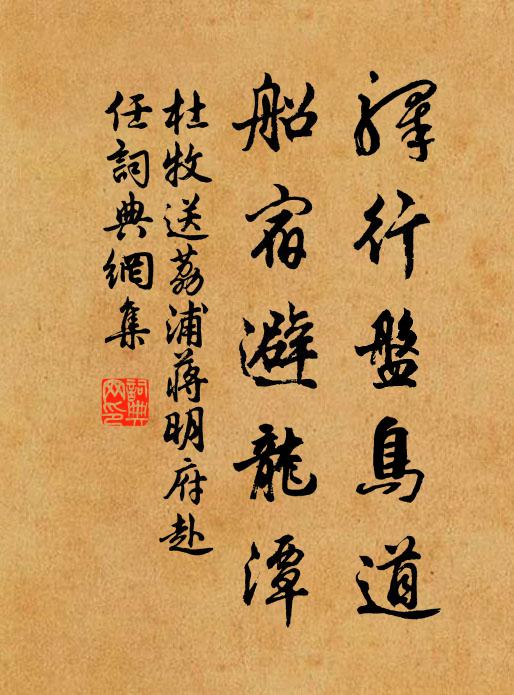 驛行盤鳥道
船宿避龍潭
杜牧送荔浦蔣明府赴
任詞典網集
詞典網印